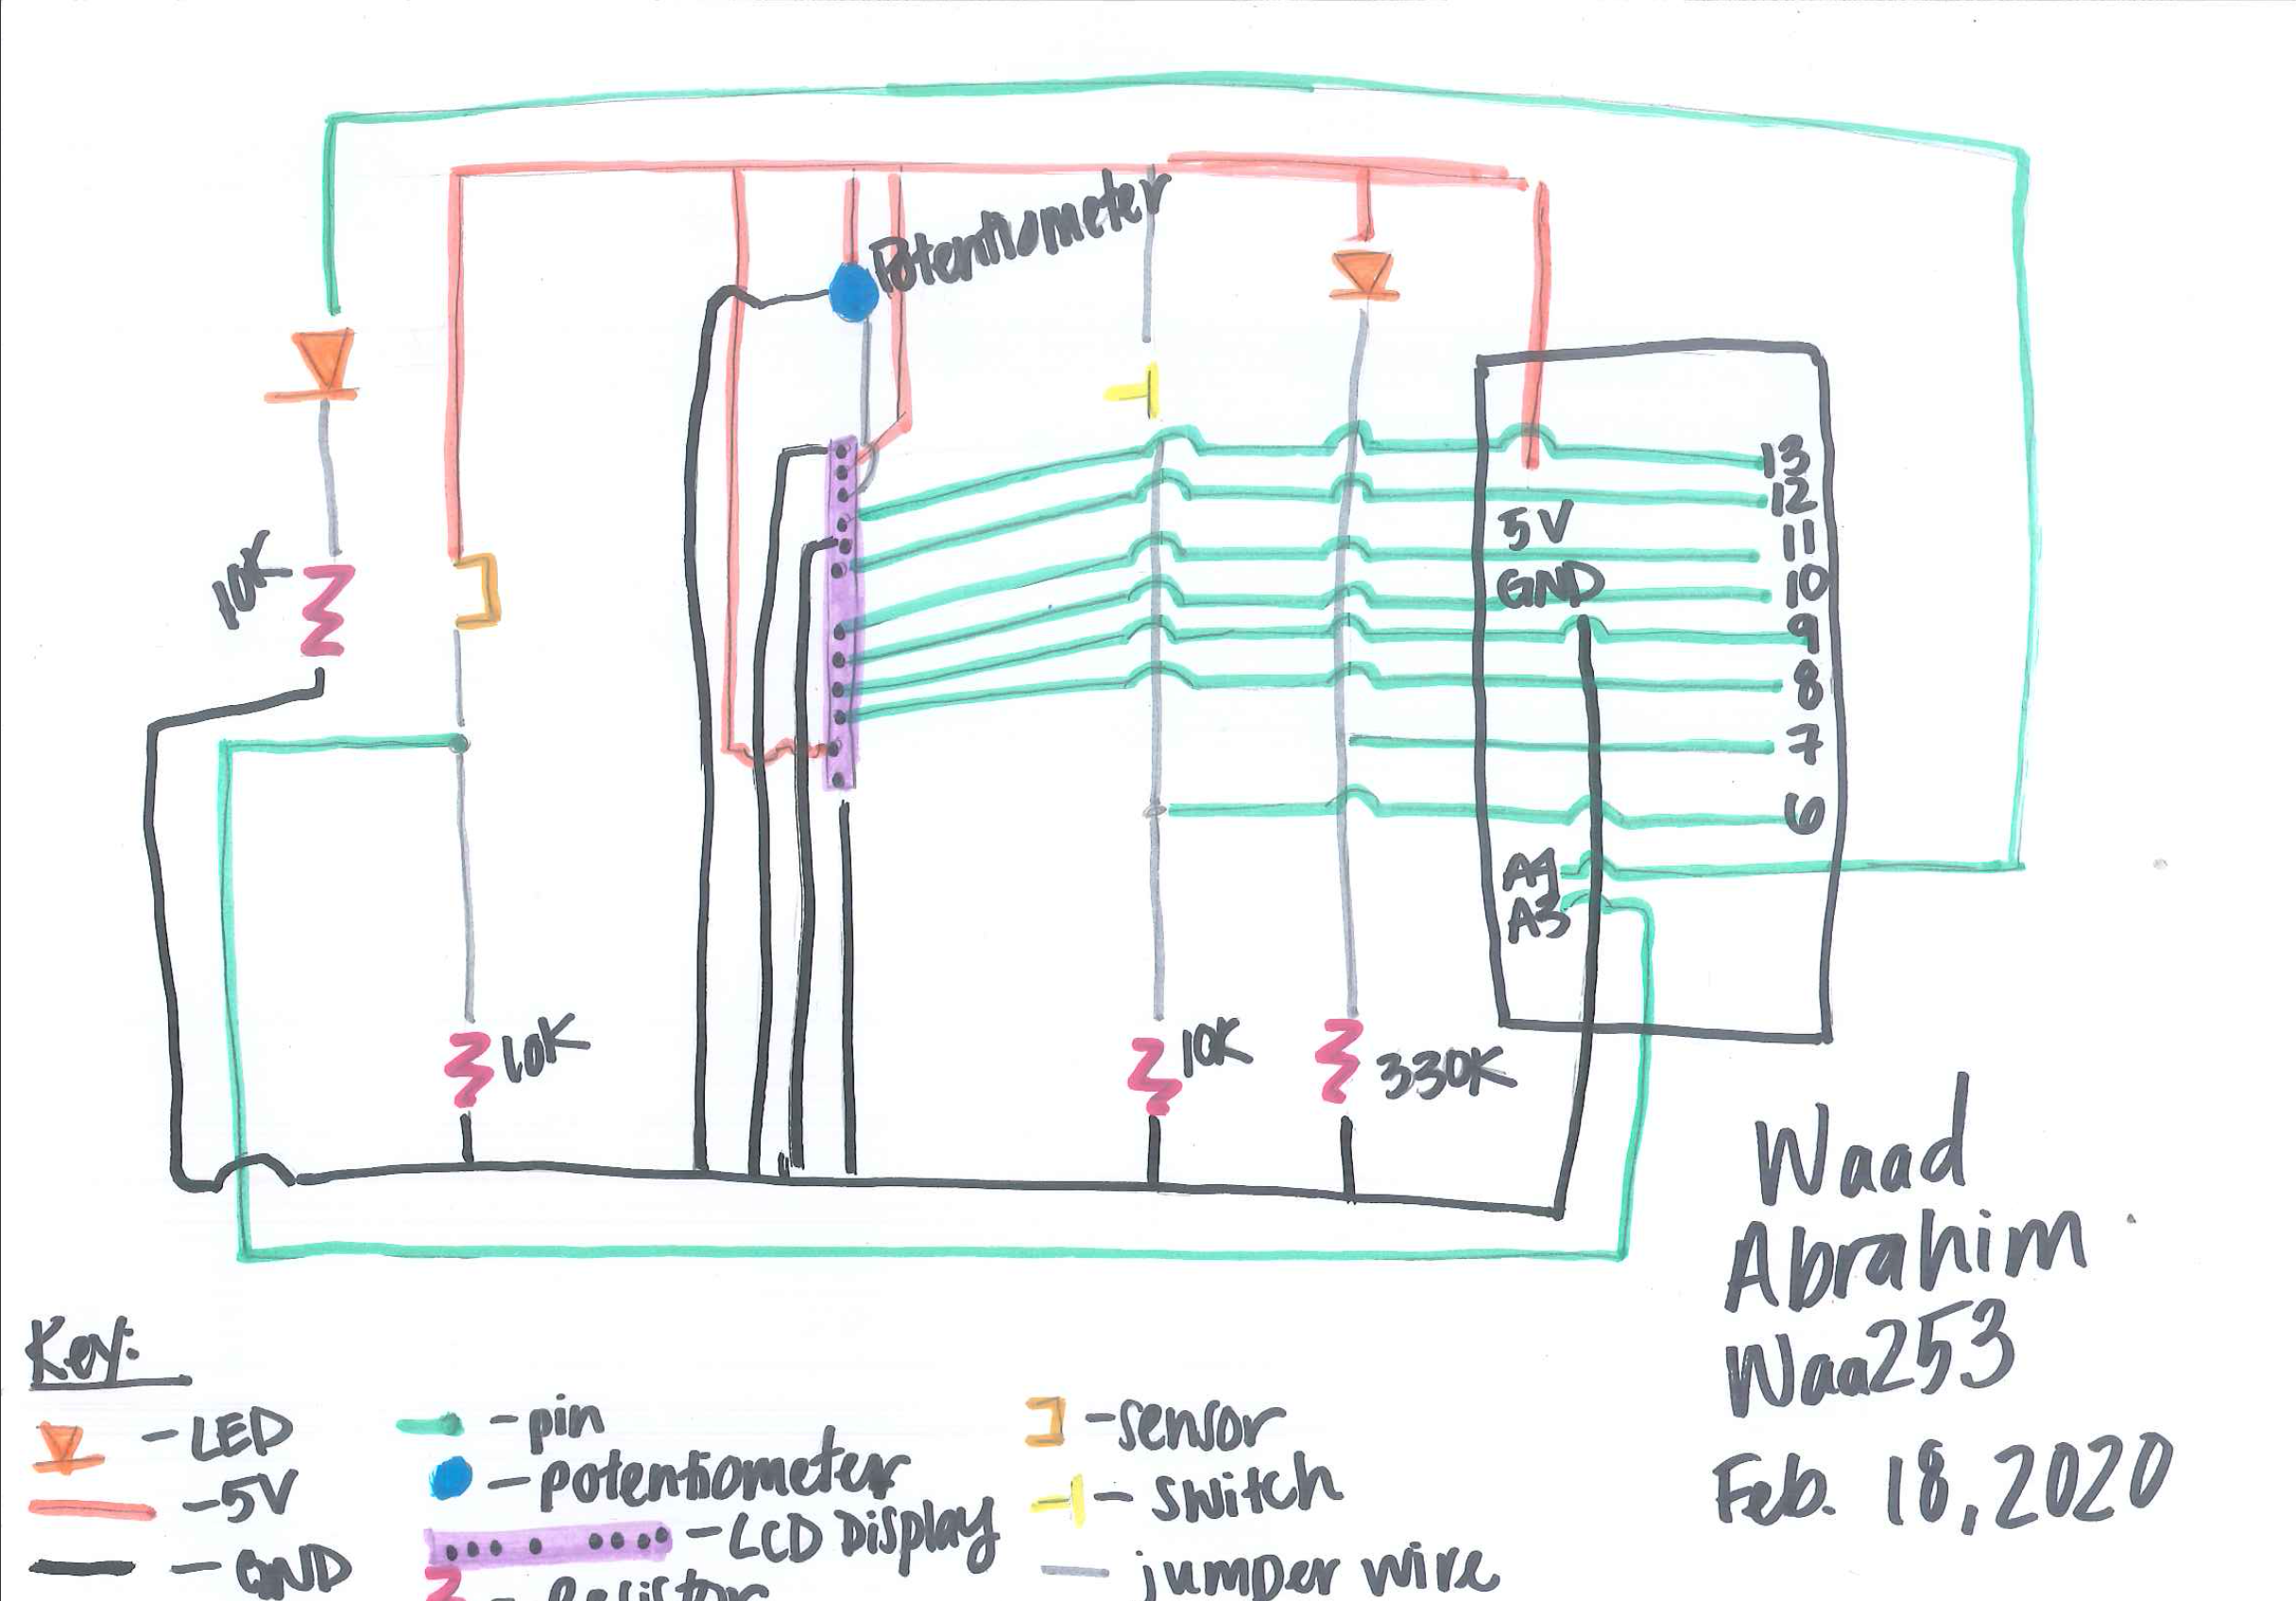 Potentiometer
10K
13
12
11
10
9
8
7
6
5V
GND
A4
A3
10K
10K
330K
Waad
Abrahim
Waa253
Feb. 18, 2020
Key:
-LED
-5V
- GND
- pin
- potentiometer
- LCD Display
- Resistor
-sensor
- switch
jumper wire